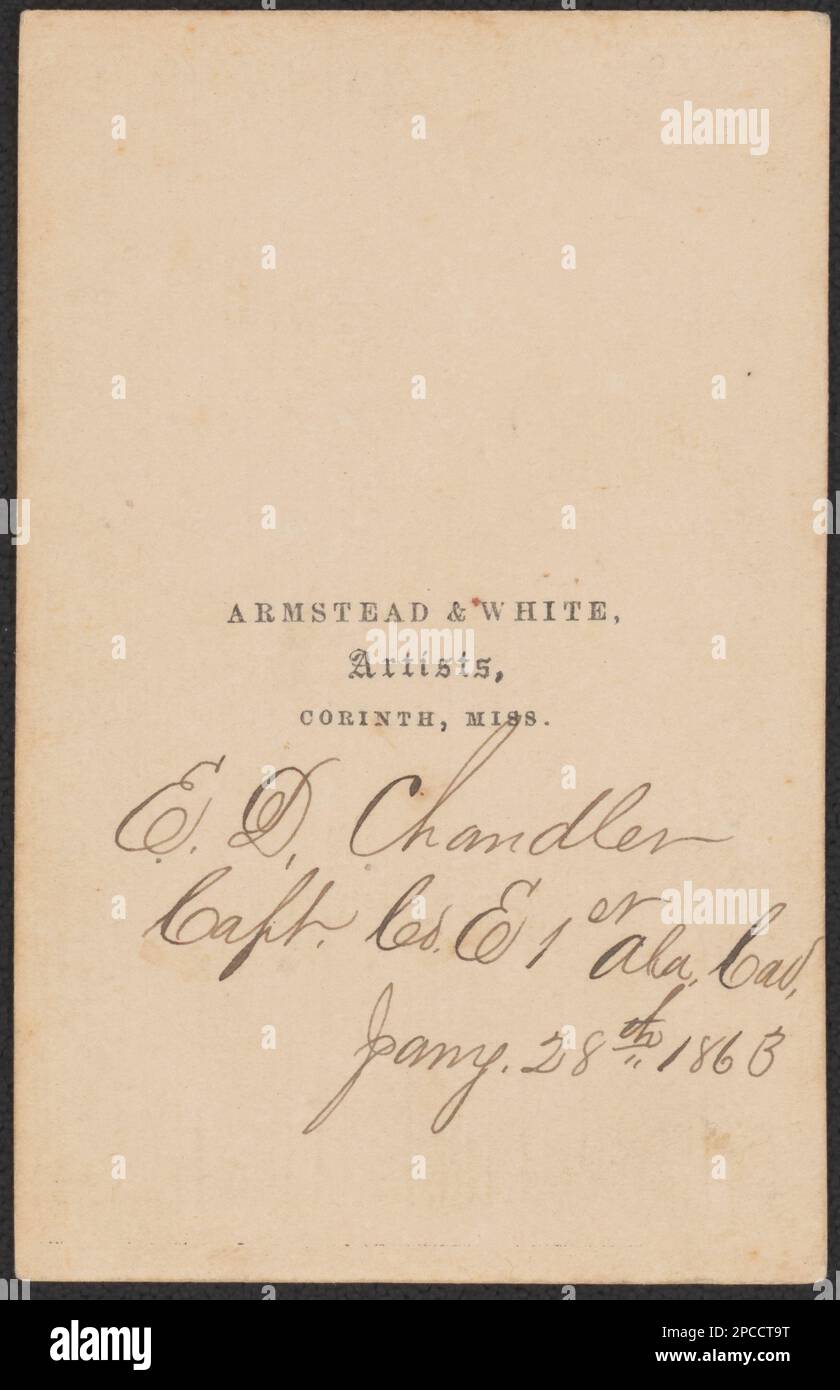 ARMSTEAD & WHITE,
Artists,
CORINTH, MISS.
E. D. Chandler
Capt. Co. E 1st Ala. Cav.
Jany. 28th 1863
alamy
alamy
Image ID: 2PCCT9T
www.alamy.com